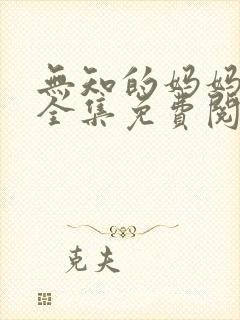 無知的妈妈
全集免費閱
克夫